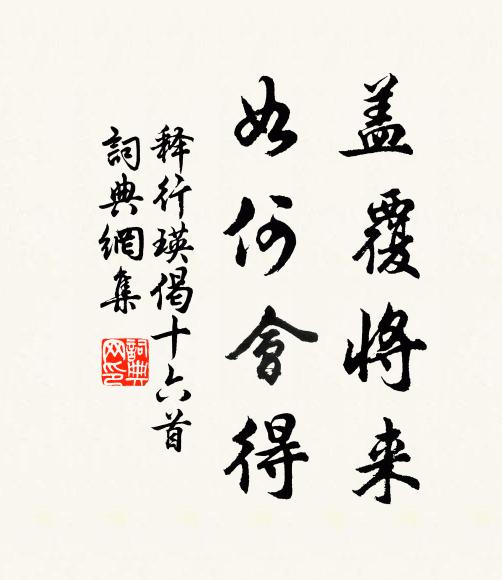 盖覆将来
如何會得
释行瑛偈十六首
詞典網集
詞典网印